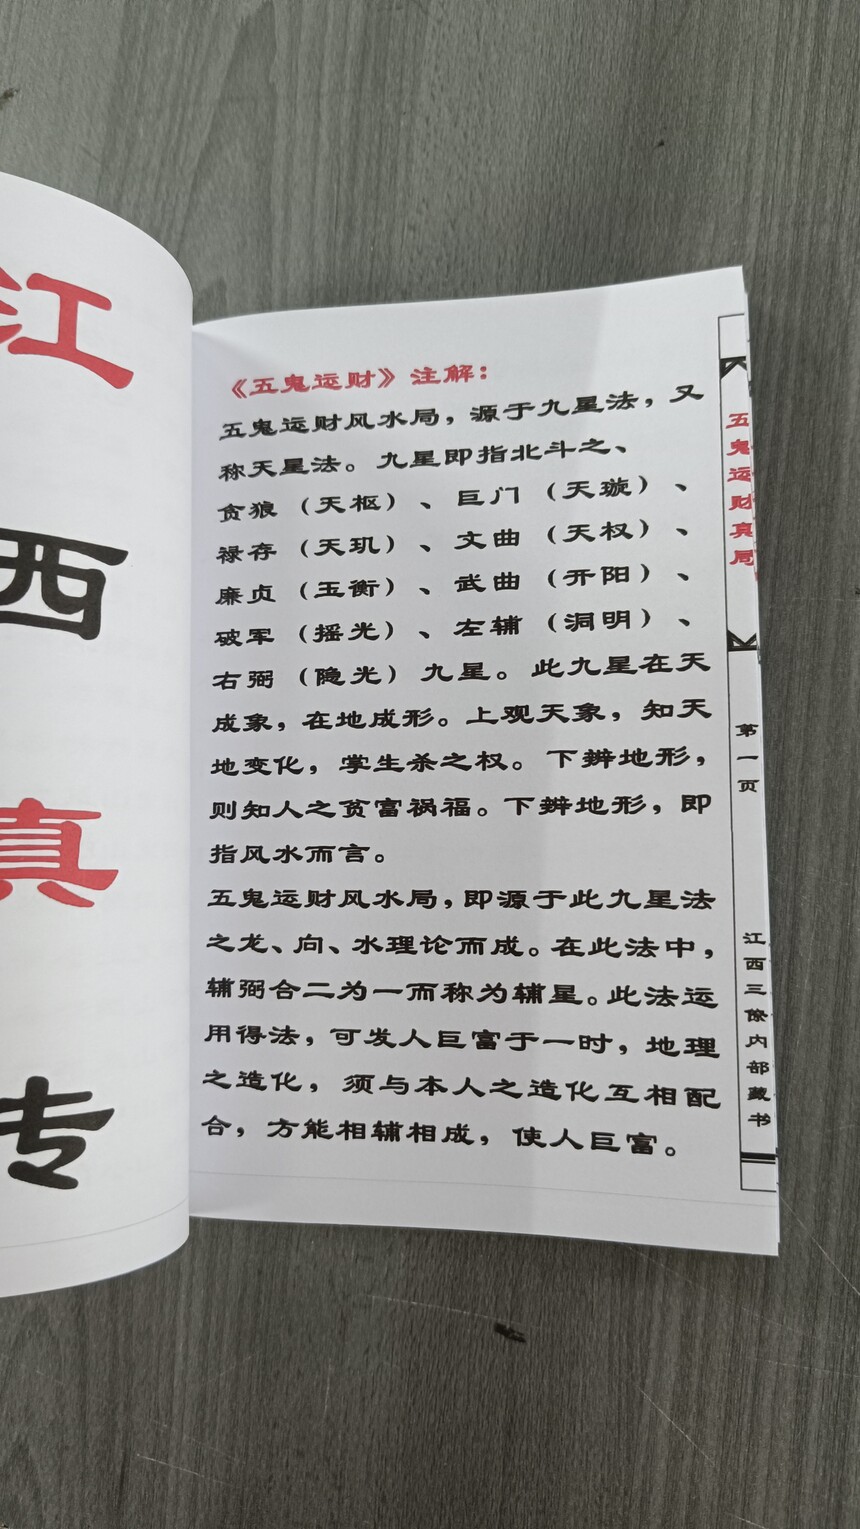 江
西
真
传
《五鬼运财》注解：
五鬼运财风水局，源于九星法，又
称天星法。九星即指北斗之、
贪狼（天枢）、巨门（天璇）、
禄存（天玑）、文曲（天权）、
廉贞（玉衡）、武曲（开阳）、
破军（摇光）、左辅（洞明）、
右弼（隐光）九星。此九星在天
成象，在地成形。上观天象，知天
地变化，掌生杀之权。下辨地形，
则知人之贫富祸福。下辨地形，即
指风水而言。
五鬼运财风水局，即源于此九星法
之龙、向、水理论而成。在此法中，
辅弼合二为一而称为辅星。此法运
用得法，可发人巨富于一时，地理
之造化，须与本人之造化互相配
合，方能相辅相成，使人巨富。
五鬼运财真局
第一页
江西三僚内部藏书